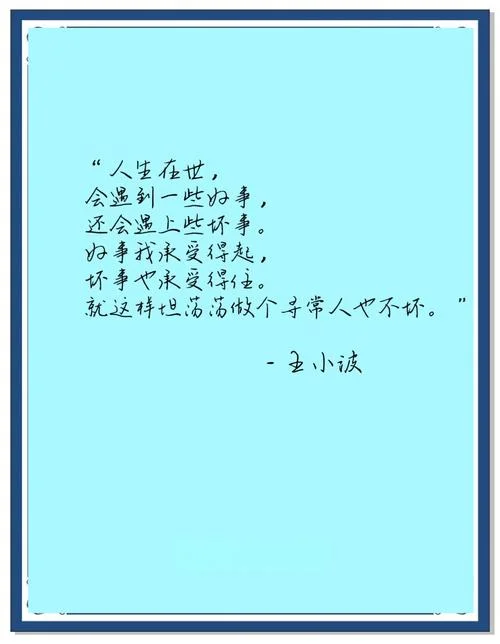 “人生在世，
会遇到一些好事，
还会遇上些坏事。
好事我承受得起，
坏事也承受得住。
就这样坦荡荡做个寻常人也不坏。”
- 王小波